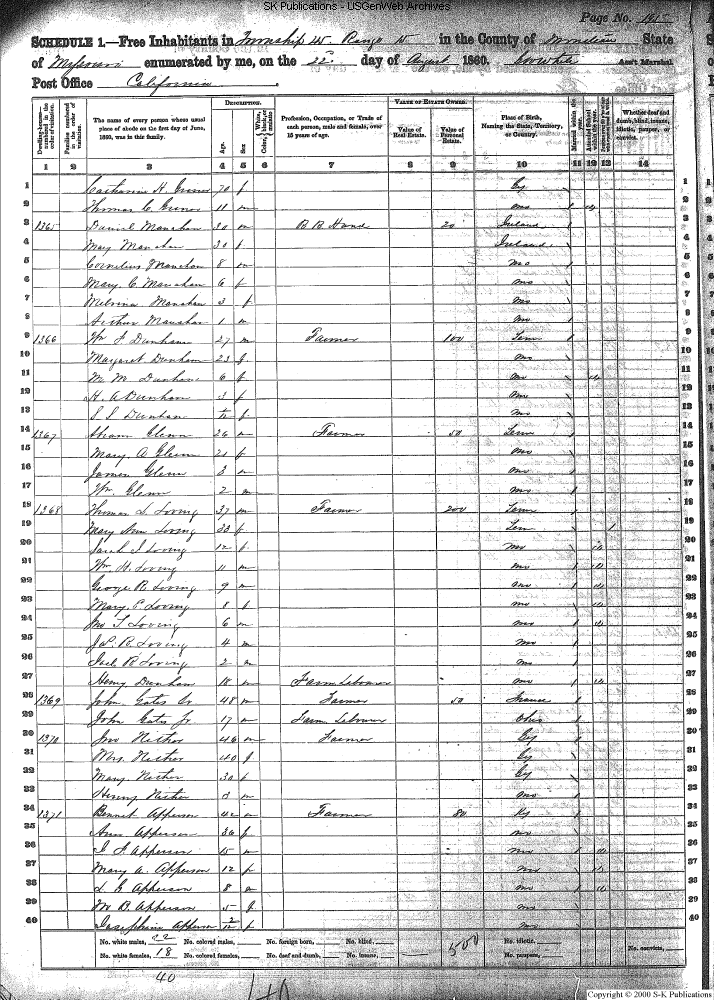 SK Publications - USGenWeb Archives
Page No.
SCHEDULE 1.—Free Inhabitants in Township 45 Range in the County of Moniteau State
of Missouri enumerated by me, on the 22 day of August 1860. Ass't Marshal
Post Office California
Dwelling-houses—numbered in the order of visitation.
Families numbered in the order of visitation.
The name of every person whose usual place of abode on the first day of June, 1860, was in this family.
DESCRIPTION.
Age.
Sex.
Color, White, black, or mulatto.
Profession, Occupation, or Trade of each person, male and female, over 15 years of age.
VALUE OF ESTATE OWNED.
Value of Real Estate.
Value of Personal Estate.
Place of Birth, Naming the State, Territory, or Country.
Married within the year.
Whether deaf and dumb, blind, insane, idiotic, pauper, or convict.
1 2 3 4 5 6 7 8 9 10 11 12 13 14
1 Catharine H 70 f Ky 1
2 Thomas C 11 m Mo 2
3 1365 Daniel Manahan 30 m R R Hand 20 Ireland 3
4 Mary Manahan 30 f Ireland 4
5 Cornelius Manahan 8 m Mo 5
6 Mary C Manahan 6 f Mo 6
7 Melvina Manahan 3 f Mo 7
8 Arthur Manahan 1 m Mo 8
9 1366 Wm F Dunham 27 m Farmer 100 Tenn 9
10 Margaret Dunham 23 f Mo 10
11 M M Dunham 6 f Mo 11
12 H A Dunham 3 f Mo 12
13 S S Dunham f Mo 13
14 1367 Abram Glenn 26 m Farmer 50 Tenn 14
15 Mary A Glenn 21 f Mo 15
16 James Glenn 3 m Mo 16
17 Wm Glenn 2 m Mo 17
18 1368 Thomas L Loving 37 m Farmer 200 Tenn 18
19 Mary Ann Loving 33 f Tenn 1 19
20 Sarah J Loving 12 f Mo 20
21 Wm H Loving 11 m Mo 21
22 George R Loving 9 m Mo 22
23 Mary P Loving 8 f Mo 23
24 Jno T Loving 6 m Mo 24
25 R Loving 4 m Mo 25
26 R Loving 2 m Mo 26
27 Henry Dunham 18 m Farm Laborer Mo 27
28 1369 John Gates Sr 48 m Farmer 50 France 28
29 John Gates Jr 17 m Farm Laborer Ohio 29
30 1370 Jno 46 m Farmer Ky 30
31 Mrs 40 f Ky 31
32 Mary 30 f Ky 32
33 Henry 3 m Mo 33
34 1371 Bennet Apperson 42 m Farmer 80 Ky 34
35 Ann Apperson 36 f Mo 35
36 J F Apperson 15 m Mo 36
37 Mary A. Apperson 12 f Mo 37
38 L Apperson 8 m Mo 38
39 B Apperson 5 Mo 39
40 Josephine Apperson 2/12 f Mo 40
No. white males, 22 No. colored males, No. foreign born, No. blind, 500 No. idiotic,
No. white females, 18 No. colored females, No. deaf and dumb, No. insane, No. paupers, No. convicts,
40
Copyright © 2000 S-K Publications